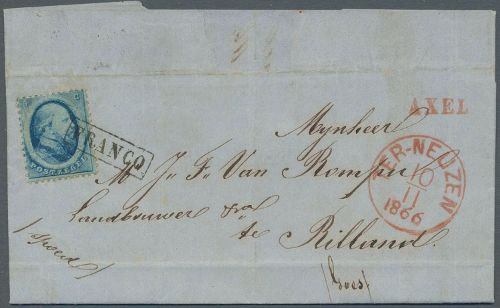 AXEL
FRANCO
POSTZEGEL
TER-NEUZEN
10
11
1866
Mynheer
J. F. Van Rompu
Landbouwer
te Rilland
/ Spoed /
/Goes/